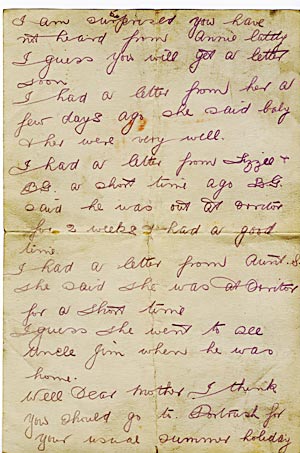 I am surprised you have
not heard from Annie lately
I guess you will get a letter
soon.
I had a letter from her a
few days ago she said baby
& her were very well.
I had a letter from Lizzie &
a short time ago
said he was out at
for 2 weeks & had a good
time.
I had a letter from Aunt. S
she said she was at
for a short time
I guess she went to see
Uncle Jim when he was
home.
Well Dear Mother I think
you should go to Portrush for
your usual summer holiday